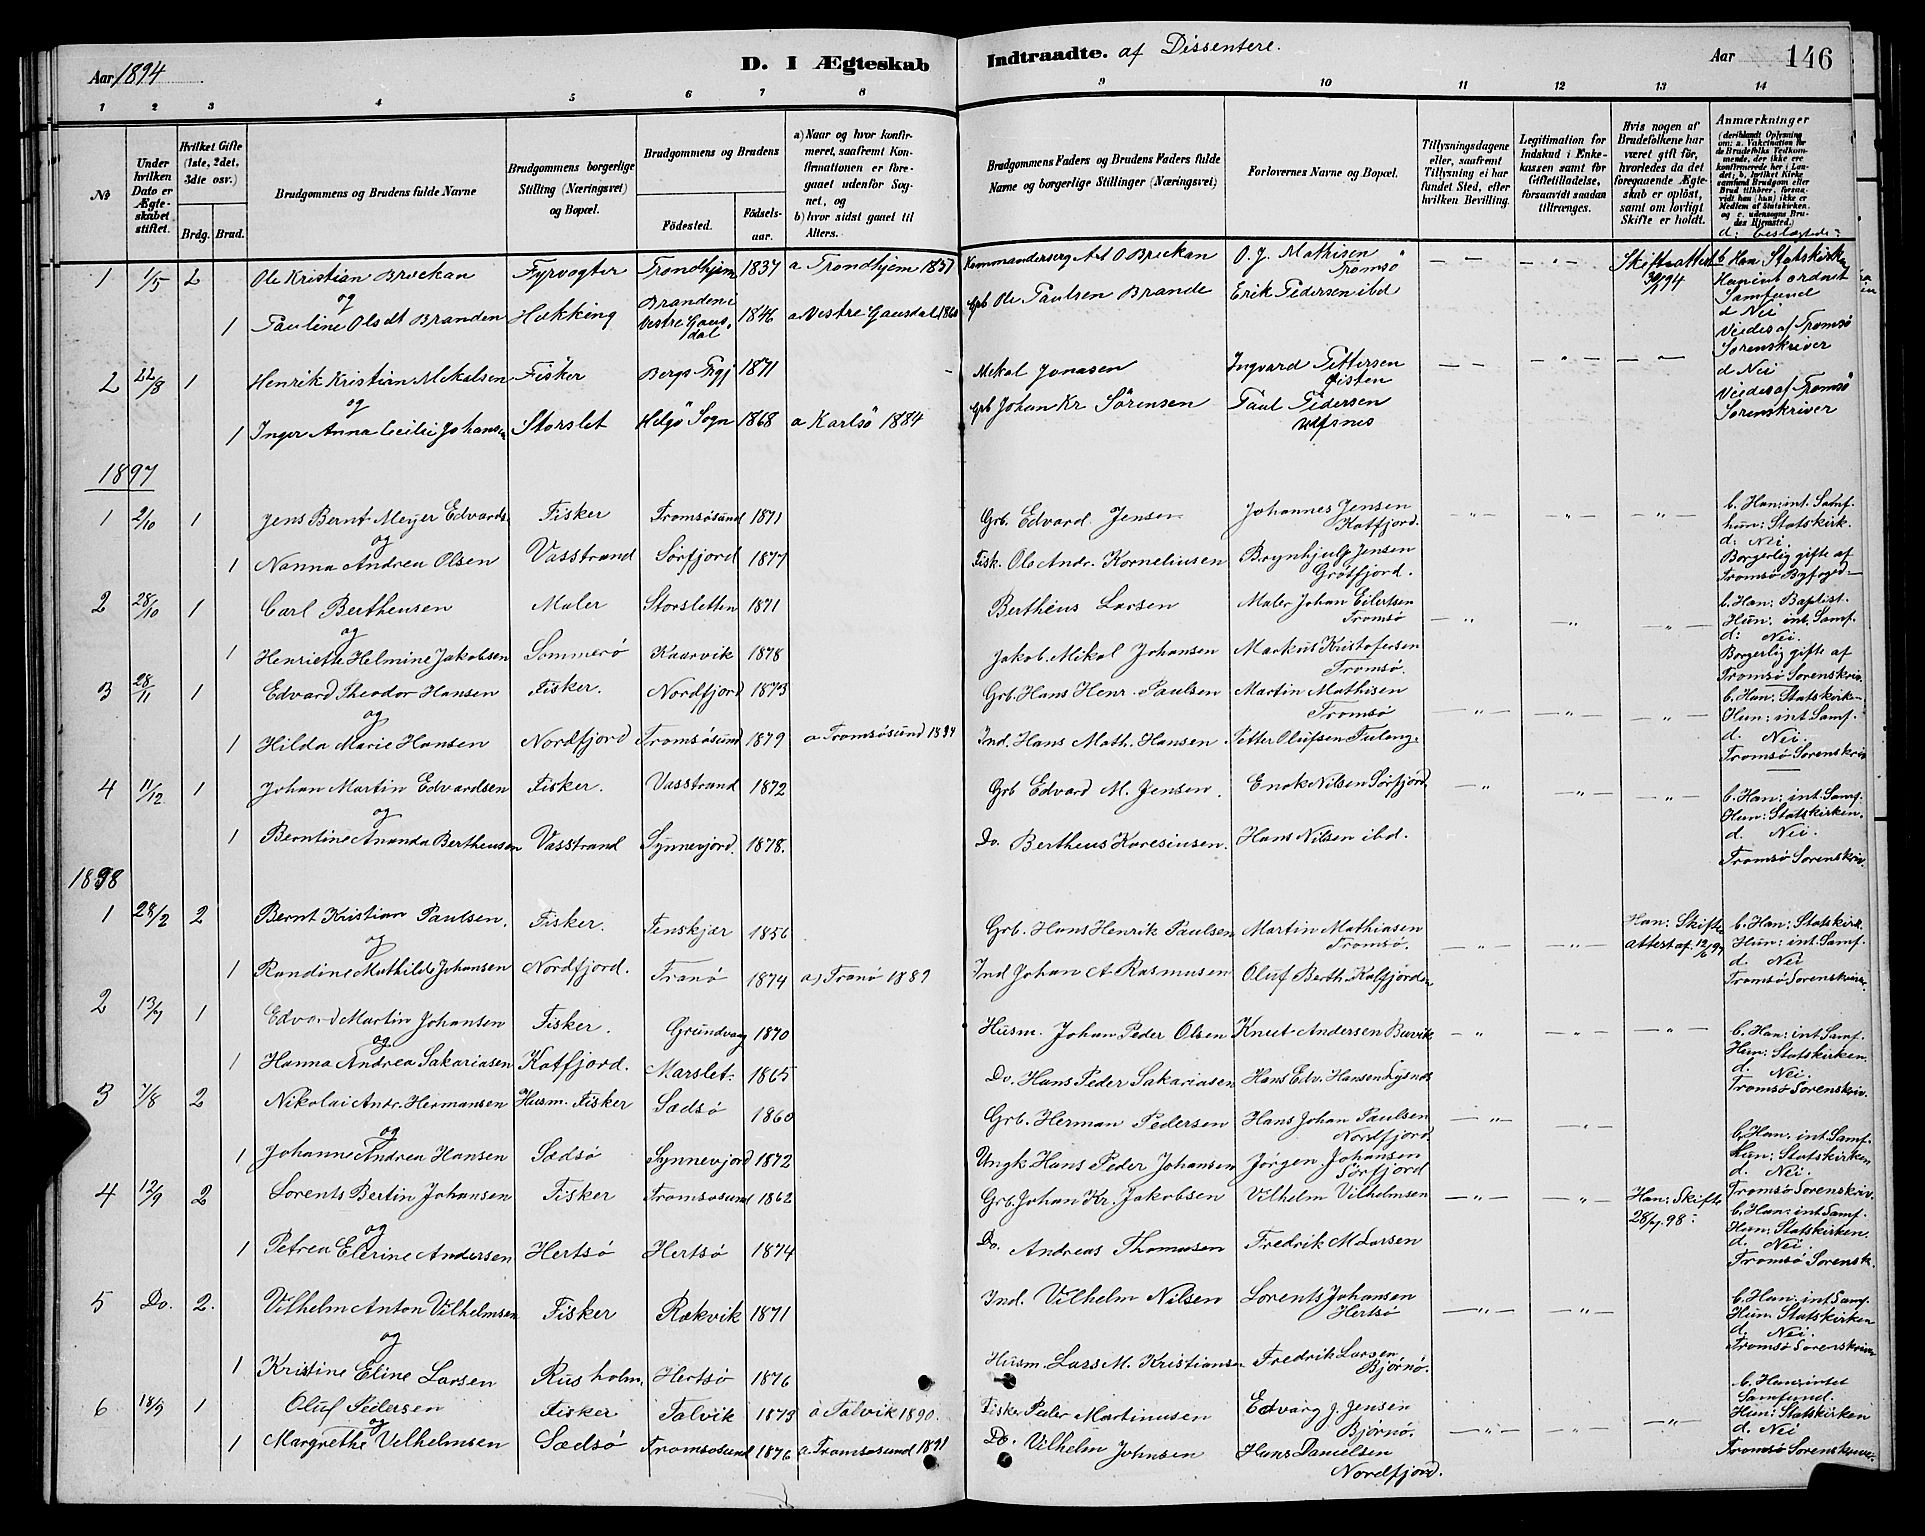 Aar 1894
D. I Ægteskab Indtraadte. af Dissentere.
Aar 146
1 2 3 4 5 6 7 8 9 10 11 12 13 14
№
Under hvilken Dato er Ægteskabet stiftet.
Hvilket Gifte (1ste, 2det, 3die osv.)
Brdg. Brud.
Brudgommens og Brudens fulde Navne
Brudgommens borgerlige Stilling (Næringsvei) og Bopæl.
Brudgommens og Brudens
Fødested.
Fødselsaar.
a) Naar og hvor konfirmeret, saafremt Konfirmationen er foregaaet udenfor Sognet, og
b) hvor sidst gaaet til Alters.
Brudgommens Faders og Brudens Faders fulde Navne og borgerlige Stillinger (Næringsvei)
Forlovernes Navne og Bopæl.
Tillysningsdagene eller, saafremt Tillysning ei har fundet Sted, efter hvilken Bevilling.
Legitimation for Indskud i Enkekassen samt for Giftetilladelse, forsaavidt saadan tiltrænges.
Hvis nogen af Brudefolkene har været gift før, hvorledes da det foregaaende Ægteskab er opløst, samt om lovligt Skifte er holdt.
Anmærkninger
(deriblandt Oplysning om: a. Vakcination for de Brudefolks Vedkommende, der ikke ere konfirmerede her i Landet; b. hvilket Kirkesamfund Brudgom eller Brud tilhører, forsaavidt han (hun) ikke er Medlem af Statskirken, og c. udensogns Brudes Hjemsted.)
d: beslægtede:
1 1/5 2 Ole Kristian Brækan Fyrvogter Trondhjem 1837 a Trondhjem 1851 O. J. Mathisen Tromsø — " — Skifteattest b Han: Statskirken
og Hun: int ordnet Samfund
1 Pauline Olsdt Branden Hekking Branden i Vestre Gausdal 1846 a Vestre Gausdal Grb Ole Paulsen Brande Erik Pedersen ibd d Nei
Viedes af Tromsø Sorenskriver
2 22/8 1 Henrik Kristian Mekalsen Fisker Bergs Prgj 1871 Mekal Jonasen Ingvard Pettersen — " — d Nei
og Viedes af Tromsø Sorenskriver
1 Inger Anna Cecilie Johansen Storslet Helgø Sogn 1868 a Karlsö 1884 Grb Johan Kr Sörensen Paul Pedersen
1897
1 2/10 1 Jens Bernt Meyer Edvards. Fisker Tromsøsund 1871 Grb. Edvard Jensen Johannes Jensen Katfjord. — " — b. Han: int. Samf. hun: Statskirk.
og d: Nei.
1 Nanna Andrea Olsen Vasstrand Sørfjord 1877 Fisk. Ole Andr. Korneliusen Brynhjulf Jensen Grøtfjord. Borgerlig gifte af Tromsø Byfoged
2 28/10 1 Carl Bertheusen Maler Storsletten 1871 Bertheus Larsen Maler Johan Eilertsen Tromsø — " — b. Han: Baptist. Hun: int. Samf.
og d: Nei.
1 Henriette Helmine Jakobsen Sommerø Kaarvik 1878 Jakob Mikal Johansen Markus Kristofersen Tromsø. Borgerlig gifte af Tromsø Sorenskriv.
3 28/11 1 Edvard Theodor Hansen Fisker. Nordfjord 1873 Grb. Hans Henr. Paulsen Martin Mathisen Tromsø — " — b. Han: Statskirk. Hun: int Samf.
og d. Nei.
1 Hilda Marie Hansen Nordfjord Tromsøsund 1879 a Tromsøsund 1894 Ind. Hans Math. Hansen Petter Olufsen Tromsø Sorenskriv
4 11/12 1 Johan Martin Edvardsen Fisker. Vasstrand 1872 Grb Edvard M. Jensen. Enok Nilsen Sørfjord — " — b. Han: int. Samf. Hun: Statskirken.
og d. Nei.
1 Berntine Ananda Bertheusen Vasstrand Synnevjord. 1878. Do. Bertheus Karesiusen. Hans Nilsen ibd. Tromsø Sorenskriv.
1898
1 28/2 2 Bernt Kristian Paulsen. Fisker. Tenskjær 1856 Grb. Hans Henrik Paulsen Martin Mathiasen Tromsø. — " — Han: Skifte attest af b. Han: Statskirk. Hun: int. Samf.
og d. Nei
1 Randine Mathilde Johansen Nordfjord. Tranø 1874 a) Tranø 1889 Ind Johan A. Rasmusen Oluf Berth. Kalfjorden Tromsø Sorenskriver.
2 13/7 1 Edvard Martin Johansen Fisker. Grundvag 1870 Husm. Johan Peder Olsen Knut Andersen Burvik — " — b. Han: int Samf. Hun: Statskirken.
og d. Nei.
1 Hanna Andrea Sakariasen Katfjord. Marslet. 1865 Do. Hans Peder Sakariasen Hans Edv. Hansen Lysnes Tromsø Sorenskriv.
3 7/8 2 Nikolai Andr. Hermansen Husm. Fisker Sædsø 1860 Grb. Herman Pedersen Hans Johan Paulsen Nordfjord. — " — b. Han: int Samf. hun: Statskirken
og d. Nei.
1 Johanne Andrea Hansen Sædsø Synnevjord 1872 Ungk Hans Peder Johansen Jørgen Johansen Sørfjord Tromsø Sorenskriv.
4 12/9 2 Lorents Bertin Johansen Fisker Tromsøsund 1862 Grb. Johan Kr. Jakobsen Vilhelm Vilhelmsen — " — Han: Skifte b. Han: int Samf. Hun: Statskirken.
og d. Nei.
1 Petrea Elerine Andersen Hertsø Hertsø 1874 Do. Andreas Thomasen Fredrik M Larsen Tromsø Sorensk.
5 Do. 2. Vilhelm Anton Vilhelmsen Fisker Rakvik 1871 Ind. Vilhelm Nilsen Lorents Johansen Hertsø — " — b. Han: int Samf. Hun: Statskirken
og d. Nei.
1 Kristine Eline Larsen Rusholm. Hertsø 1876 Husm. Lars M. Kristiansen Fredrik Larsen Bjørnø. Tromsø Sorenskriver
6 18/9 1 Oluf Pedersen Fisker Talvik 1873 a Talvik 1890. Fisker Peder Martinusen Edvarg J. Jensen Bjørnø. — " — b. Han: intet Samfund. Hun: Statskirken
og d. Nei
1 Margrethe Velhelmsen Sædsø Tromsøsund 1876 a. Tromsøsund 1891 Do. Vilhelm Johnsen Hans Danielsen Nordfjord. Tromsø Sorenskriver.